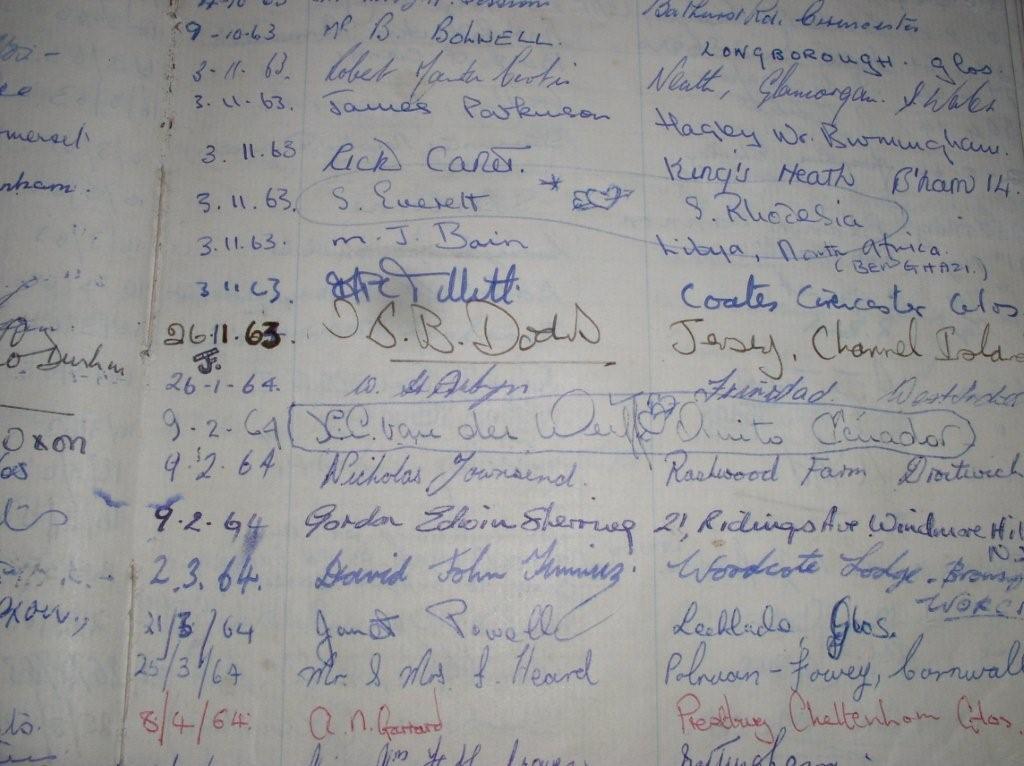 Bathurst Rd. Cirencester
9-10-63 Mr B. BOLNELL. LONGBOROUGH. Glos.
3-11-63. Robert Neath, Glamorgan. S Wales
3.11.63. James Parkinson Hagley Nr. Birmingham.
3.11.63 Rick Carter. King's Heath B'ham 14.
3.11.63. S. Everett * S. Rhodesia
3.11.63. M. J. Bain Libya, North Africa.
(BENGHAZI.)
3.11.63. Tillett. Coates Cirencester Glos
26.11.63. I S. B. Dodds Jersey, Channel Islands
J.
26-1-64. W. St Aubyn Trinidad. West Indies
9-2-64 van der Werff Quito Ecuador
9.2.64 Nicholas Townsend. Rashwood Farm Droitwich
9.2.64 Gordon Edwin 21, Ridings Ave. Windmore Hill
2.3.64. David John Woodcote Lodge - Broms
WORCS
21/3/64 Janet Powell Lechlade, Glos.
25/3/64 Mr. & Mrs. Heard Polruan - Fowey, Cornwall
8/4/64. A. N. Garrard Prestbury Cheltenham Glos.
Oxon
Co. Durham